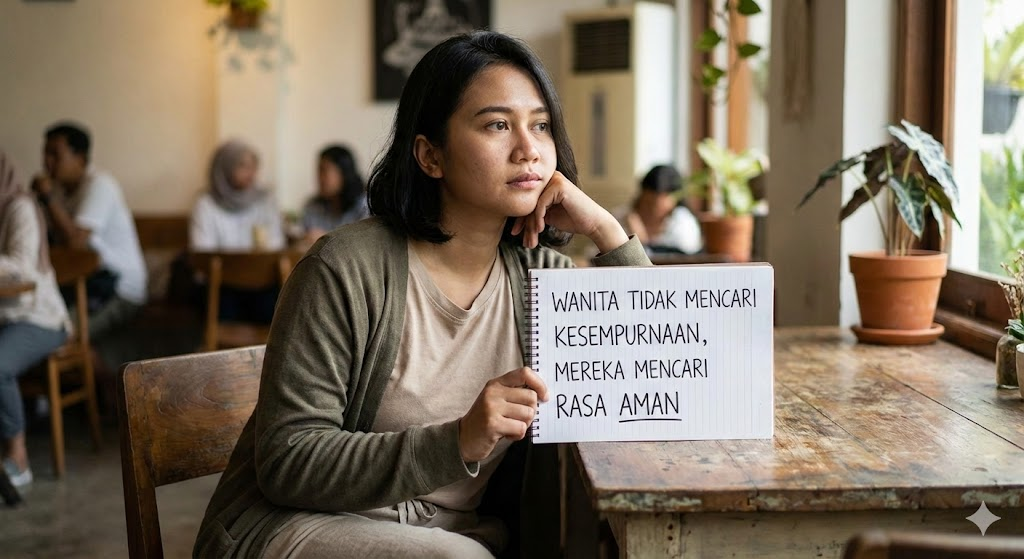 WANITA TIDAK MENCARI
KESEMPURNAAN,
MEREKA MENCARI
RASA AMAN